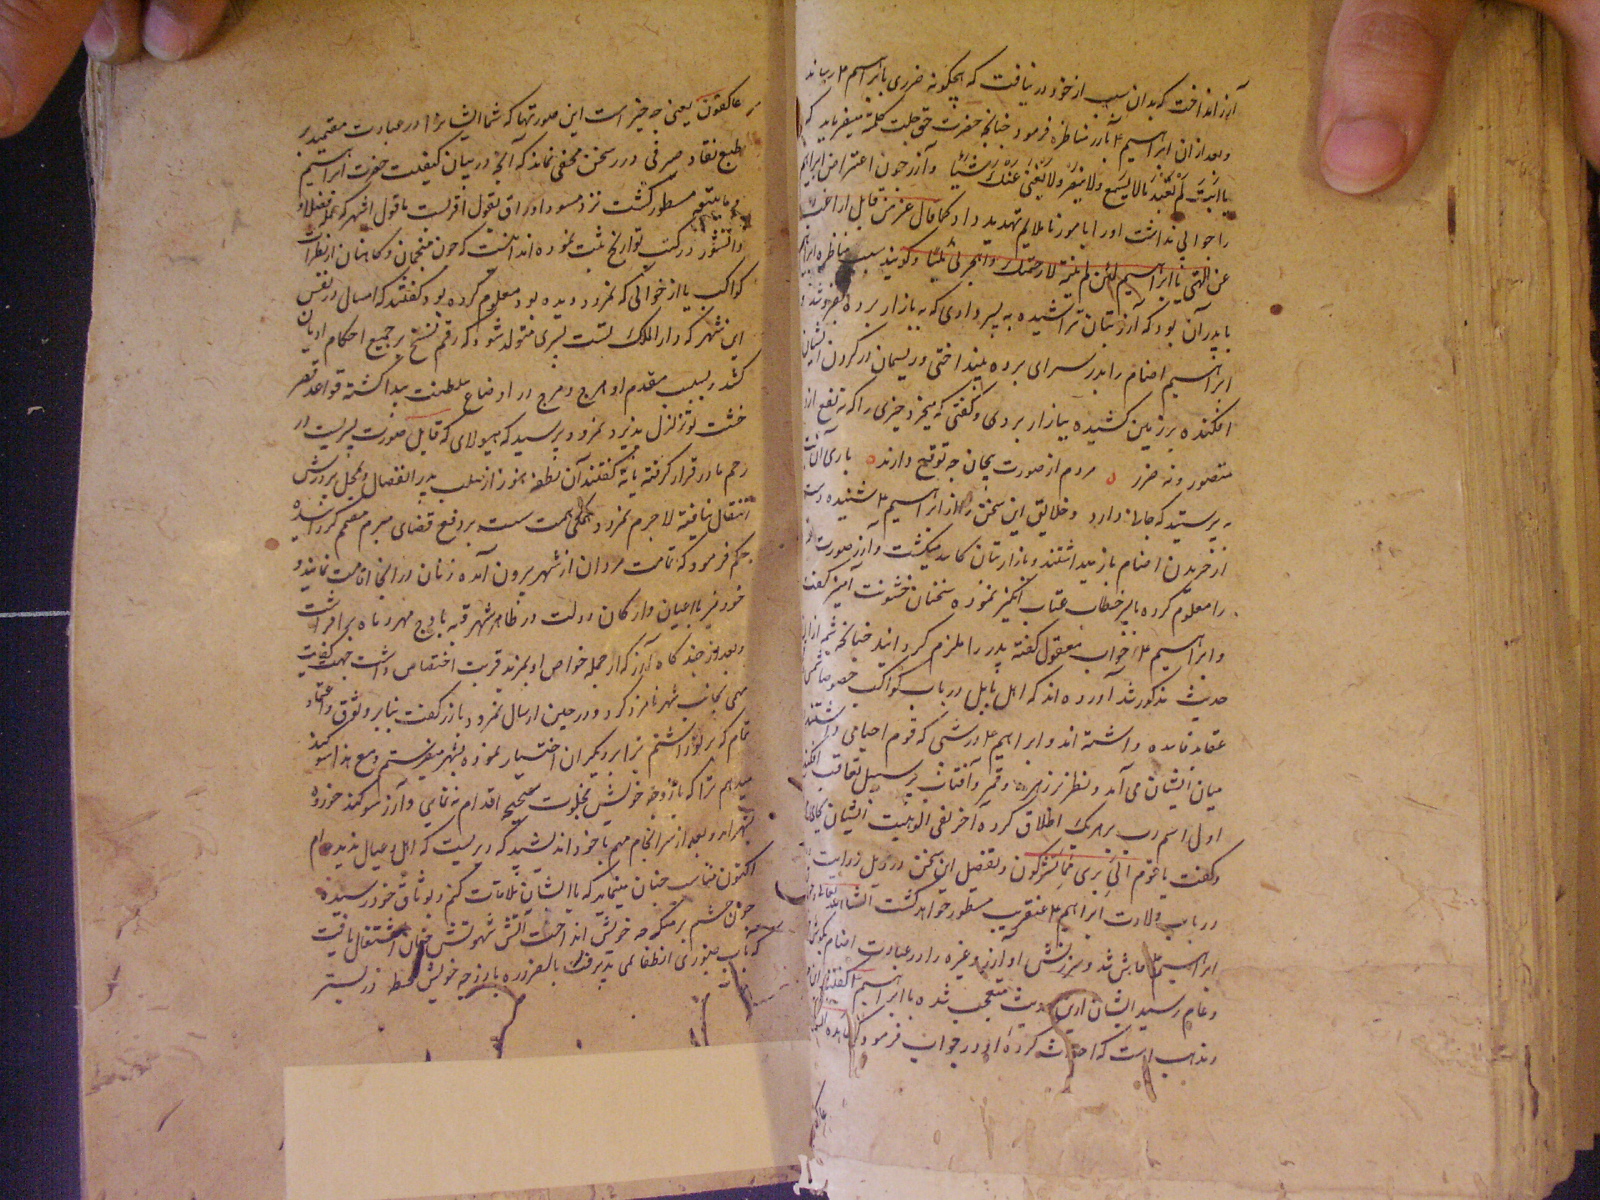 آزر انداخت که بدان سبب از خود در نیافت که هیچکونه ضرری بابراهیم ۴ رساند
و بعد از آن ابراهیم ۴ با آزر مناظره فرمود چنانچه حضرت حق جلت کلمته میفرماید که
یا ابت لم تعبد مالا یسمع ولا یبصر ولا یغنی عنک شیئا و آزر چون اعتراض ابراهیم
را جوابی نداشت اورا بامور ناملایم تهدید داد کما قال عز من قایل اراغب
عن الهتی یا ابراهیم لئن لم تنته لارجمنک واهجرنی ملیا و کویند سبب مناظره ابراهیم
با پدر آن بود که آزر بتان تراشیده به پسر دادی که به بازار برده بفروشد و
ابراهیم اصنام را بدر سرای برده بینداختی و ریسمان در کردن ایشان
افکنده بر زمین کشیده ببازار بردی و کفتی که میخرد چیزی را که نه نفع ازو
متصور و نه ضرر مردم از صورت بیجان چه توقع دارند باری آنرا
به پرستید که جان دارد و خلایق این سخن را از ابراهیم ۴ شنیده دست
از خریدن اصنام باز میداشتند و بازار بتان کاسد میکشت و آزر صورت
را معلوم کرده با پسر خطاب عتاب انکیز نموده سخنان خشونت آمیز کفت
و ابراهیم ۴ جواب معقول کفته پدر را ملزم کردانید چنانچه شمه ازین
حدیث مذکور شد آورده اند که اهل بابل در باب کواکب خصوصا شمس
عقاید فاسده داشته اند و ابراهیم ۴ در شبی که قوم احیامی داشتند
میان ایشان می آمد و نظر بر زهره و قمر و آفتاب بر سبیل تعاقب افکند
اول اسم رب بر هریک اطلاق کرده آخر نفی الوهیت ایشان
و کفت یا قوم انی بری مما تشرکون و تفصیل این سخن در ذیل روایت
در باب ولادت ابراهیم ۴ عنقریب مسطور خواهد کشت انشا الله تعالی
ابراهیم ۴ فاش شد و سرزنش او آزر و غیره را در عبادت اصنام بکوش
و عام رسید ایشان ازین حدیث متعجب شده با ابراهیم ۴ کفتند
مذهب است که احداث کرده در جواب فرمود که ما هذه التماثیل
عاکفون یعنی چه چیز است این صورتها که شما ایشانرا در عبادت مقیمید بر
طبع نقاد صرفی در سخن مخفی نماند که آنچه در بیان کیفیت حضرت ابراهیم
مسطور کشت نزد مسود اوراق بقول اقربست ما قول اشهر که فضلا و
دانشور در کتب تواریخ ثبت نموده اند آنست که چون منجمان و کاهنان از نظرات
کواکب یا از خوابی که نمرود دیده بود معلوم کرده بود کفتند که امسال در نفس
این شهر که دارالملک تست پسری متولد شود که رقم نسخ بر جمیع احکام ادیان
کشد و بسبب مقدم او هرج و مرج در اوضاع سلطنت پیدا کشته قواعد قصر
تو تزلزل پذیرد نمرود پرسید که هیولای که قابل صورت پسریست در
رحم مادر قرار کرفته یا نه کفتند آن نطفه هنوز از صلب پدر انفصال و بمحل پرورش
انتقال نیافته لاجرم نمرود همکی همت بست بر دفع قضای مبرم مصمم کردانیده
حکم فرمود که تمامت مردان از شهر بیرون آمده زنان در انجا اقامت نمایند و
خود نیز با اعیان و ارکان دولت در ظاهر شهر قبه باوج مهر و ماه برافراشت
و بعد روز چند کاه آزر که از جمله خواص او بمزید قربت اختصاص داشت جهت کفایت
مهمی بجانب شهر نامزد کرد و در حین ارسال نمرود با آزر کفت بنابر وثوق و اعتماد
تمام که بر تو داشتم ترا بر دیکران اختیار نموده بشهر میفرستم و مع هذا سوکند
میدهم ترا که با زوجه خویش بخلوت صحیحه اقدام ننمایی و آزر سوکند خورده
بشهر آمد و بعد از سرانجام مهم با خود اندیشید که دیریست که اهل و عیال ندیده ام
اکنون مناسب چنان مینماید که با ایشان ملاقات کنم و بوثاق خود رسیده
چون چشم بر منکوحه خویش انداخت آتش شهوتش چنان اشتعال یافت
که بآب صبوری انطفا نمی پذیرفت بالضروره با زوجه خویش